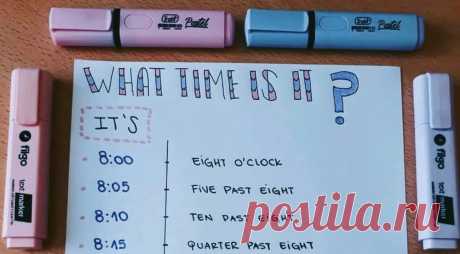 WHAT TIME IS IT?
IT'S
8:00 EIGHT O'CLOCK
8:05 FIVE PAST EIGHT
8:10 TEN PAST EIGHT
8:15 QUARTER PAST EIGHT
Pastel
Pastel
figo
text marker
figo
text marker
postila.ru